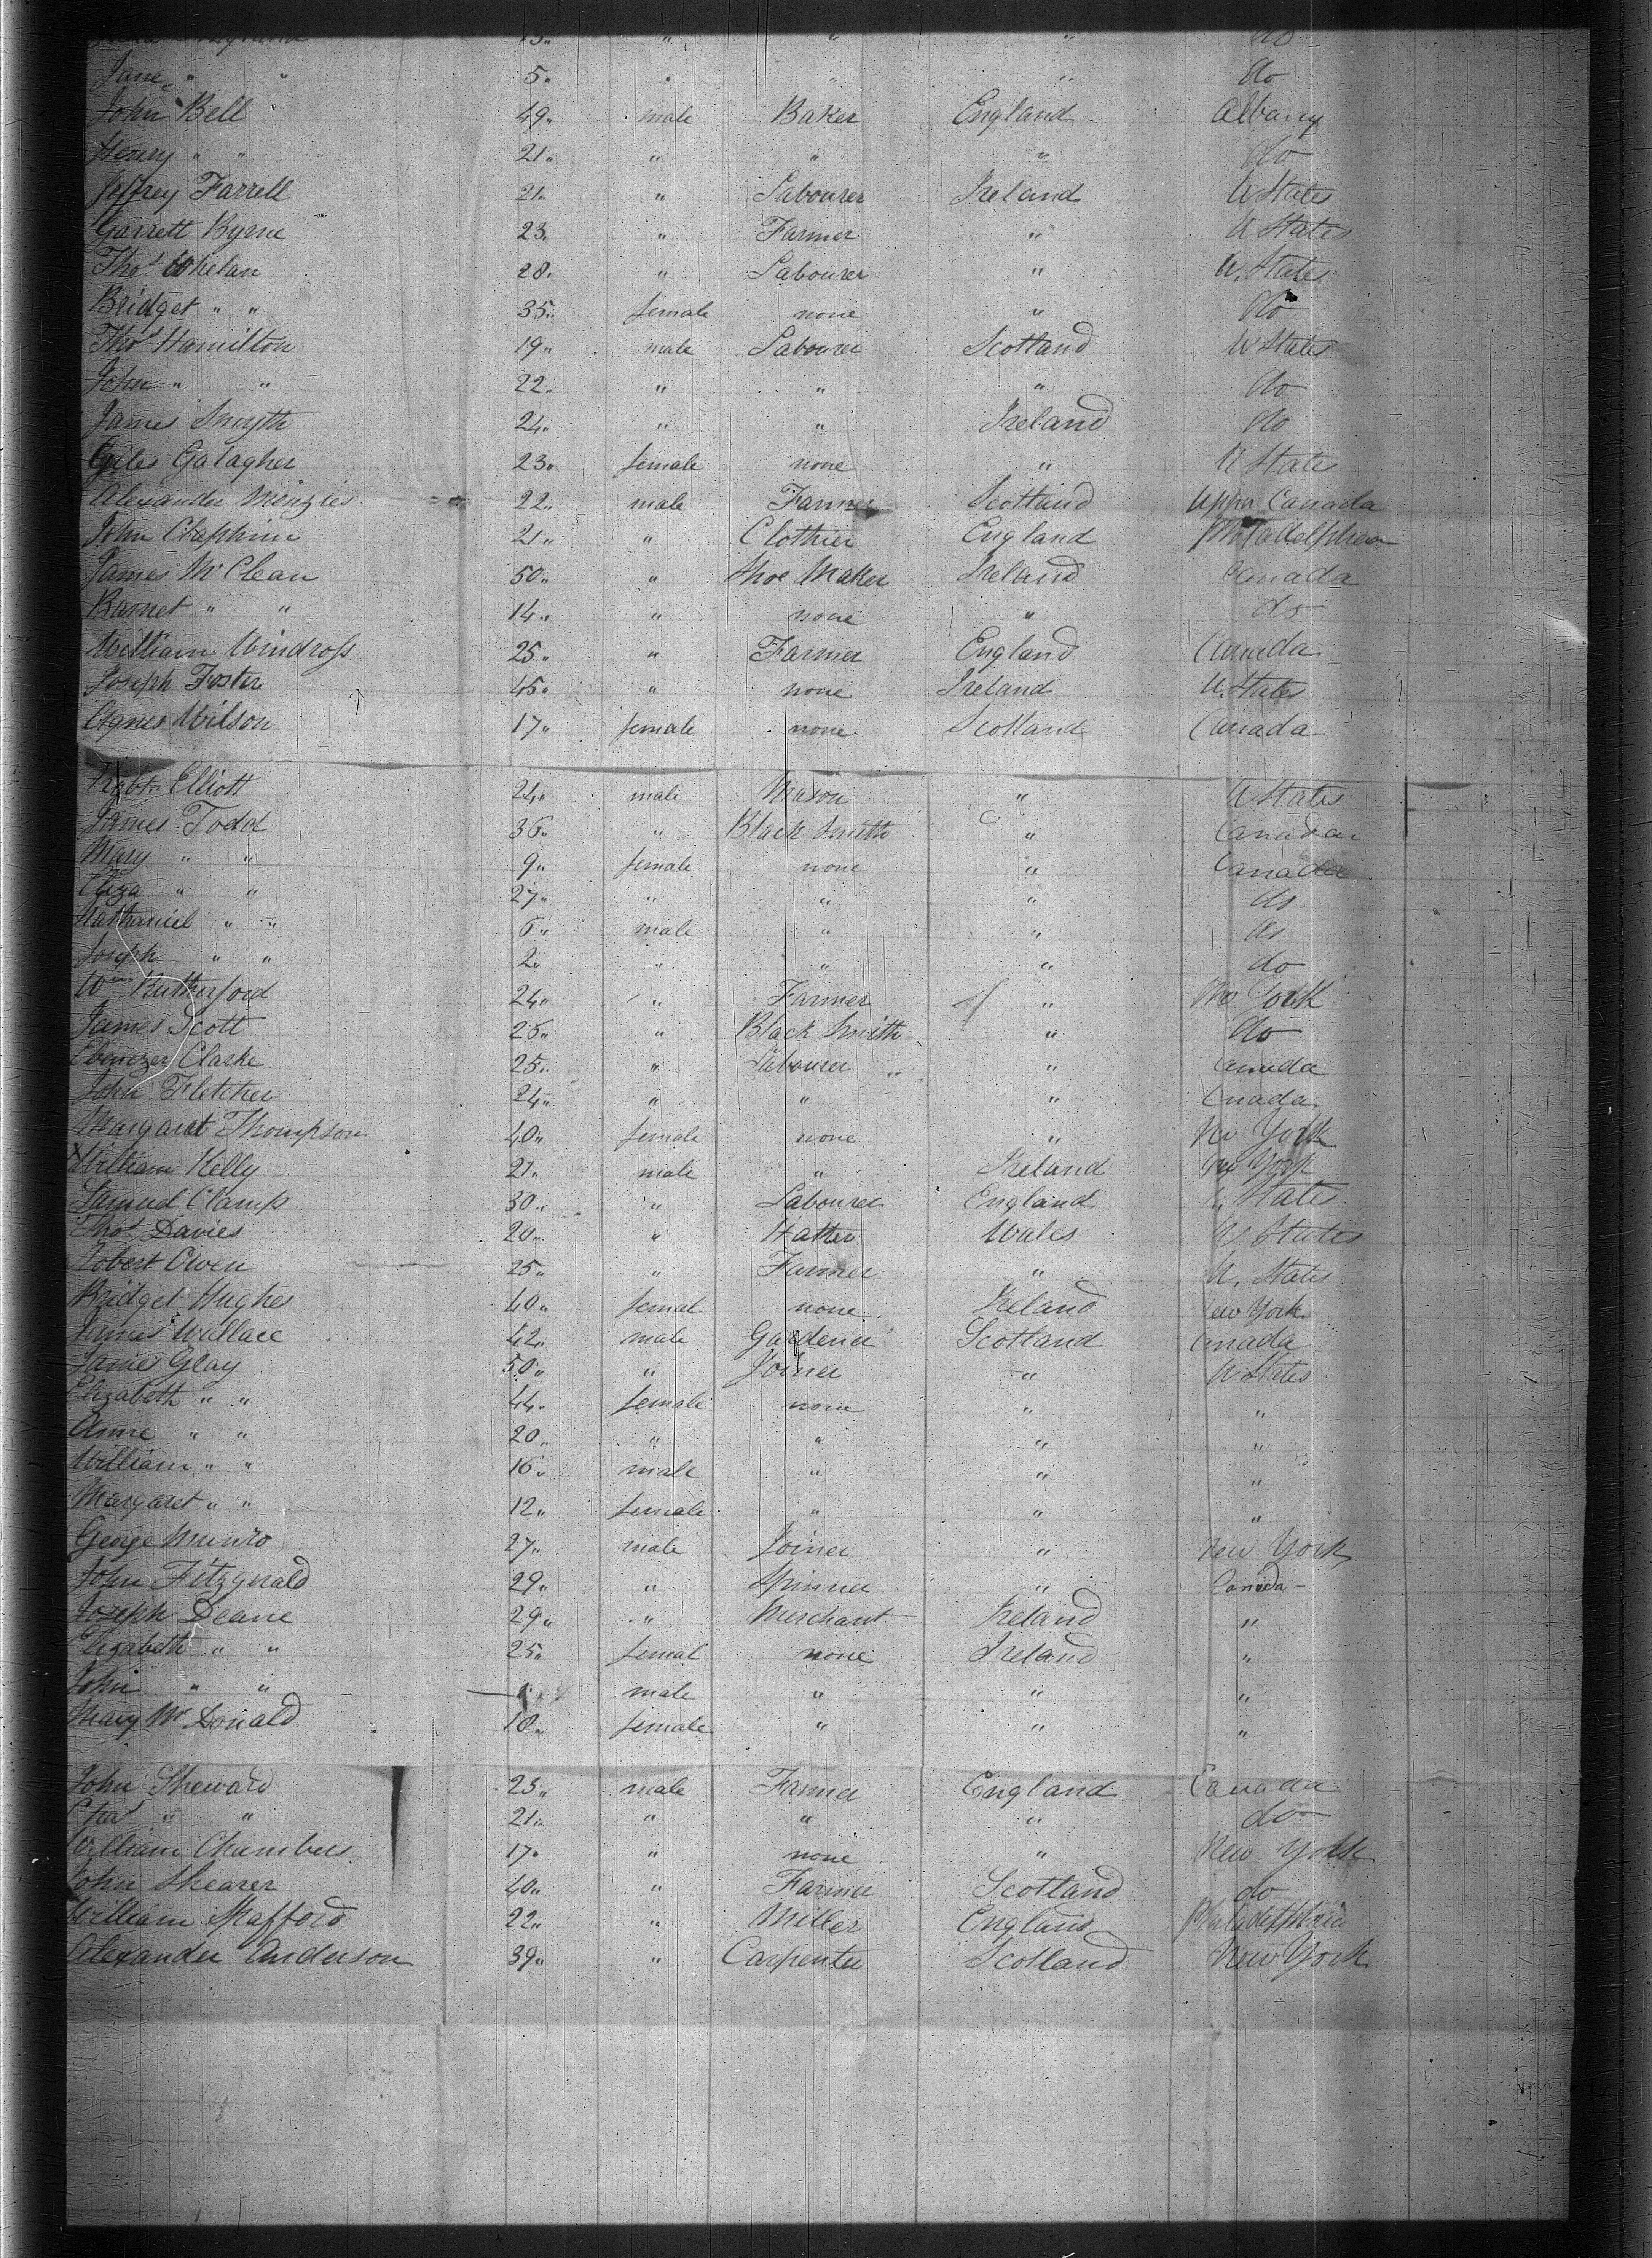 13 " " " do
Jane " " 5 " " " do
John Bell 49 male Baker England Albany
Henry " " 21 " " " do
Jeffrey Farrell 21 " Labourer Ireland U States
Garrett Byrne 23 " Farmer " U States
Thos Whelan 28 " Labourer " U. States
Bridget " " 35 female none " do
Thos Hamilton 19 male Labourer Scotland U States
John " " 22 " " " do
James Smyth 24 " " Ireland do
Giles Galagher 23 female none " U States
Alexander Minzies 22 male Farmer Scotland Upper Canada
John Claphim 21 " Clothier England
James McClean 50 " Shoe Maker Ireland Canada
Barnet " " 14 " none " do
William Windross 25 " Farmer England Canada
Joseph Foster 45 " none Ireland U. States
Agnes Wilson 17 female none Scotland Canada
Robt Elliott 24 male Mason " U States
James Todd 36 " Black Smith " Canada
Mary " " 9 female none " Canada
Eliza " " 27 " " " do
Nathaniel " " 6 male " " do
Joseph " " 2 " " " do
Wm Rutherford 24 " Farmer " New York
James Scott 26 " Black Smith " do
Ebenezer Clarke 25 " Labourer " Canada
John Fletcher 24 " " " Cnada
Margaret Thompson 40 female none " New York
William Kelly 21 male " Ireland New York
Samuel Clamp 30 " Labourer England U. States
Thos Davies 20 " Hatter Wales U States
Robert Owen 25 " Farmer " U. States
Bridget Hughes 40 femal none Ireland New York
James Wallace 42 male Gardener Scotland Canada
James Gray 50 " Joiner " U States
Elizabeth " " 44 female none " "
Anne " " 20 " " " "
William " " 16 male " " "
Margaret " " 12 female " " "
George Munro 27 male Joiner " New York
John Fitzgerald 29 " Spinner " Canada
Joseph Deane 29 " Merchant Ireland "
Elizabeth " " 25 femal none Ireland "
John " " male " " "
Mary McDonald 18 female " " "
John Sheward 25 male Farmer England Canada
Chas " " 21 " " " do
William Chambers 17 " none " New York
John Shearer 40 " Farmer Scotland do
William Stafford 22 " Miller England Philadelphia
Alexander Anderson 39 " Carpenter Scotland New York